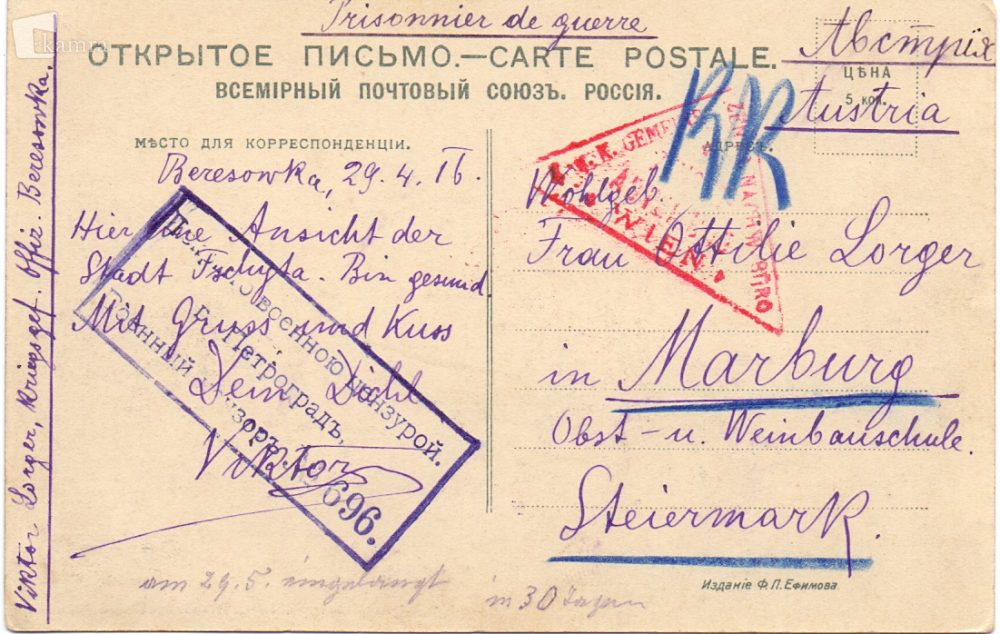 kamra
Prisonnier de guerre
ОТКРЫТОЕ ПИСЬМО.—CARTE POSTALE.
ВСЕМІРНЫЙ ПОЧТОВЫЙ СОЮЗЪ. РОССІЯ.
Австрія
Austria
ЦѢНА
5 коп.
МѢСТО ДЛЯ КОРРЕСПОНДЕНЦІИ.
АДРЕСЪ.
Beresowka, 29.4.16.
Hier eine Ansicht der
Stadt Tschyta. Bin gesund.
Mit Gruss und Kuss
Dein Dichl
Viktor
военною цензурой.
г. Петроградъ,
Военный цензоръ
696.
WIEN
Wohlgeb.
Frau Ottilie Lorger
in Marburg
Obst- u. Weinbauschule.
Steiermark.
Viktor Lorger, Kriegsgef. Offiz. Beresowka.
am 29.5. eingelangt
in 30 Tagen
Изданіе Ф.П.Ефимова